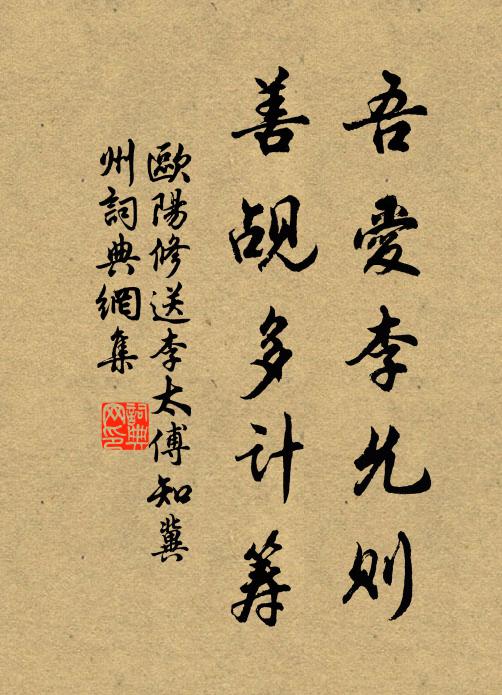 吾愛李允則
善觇多计筹
歐陽修送李太傅知冀
州詞典網集
詞典
网印